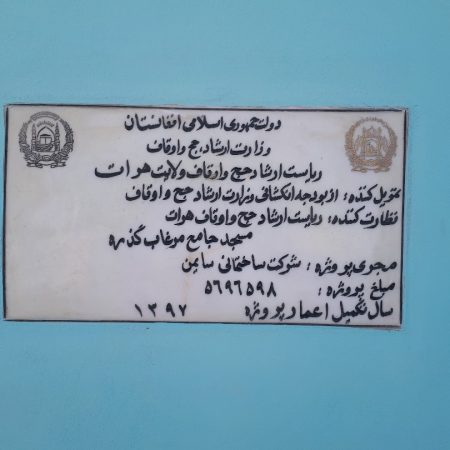 دولت جمهوری اسلامی افغانستان
وزارت ارشاد، حج و اوقاف
ریاست ارشاد حج و اوقاف ولایت هرات
تمویل کننده: از بودجه انکشافی وزارت ارشاد حج و اوقاف
نظارت کننده: ریاست ارشاد حج و اوقاف هرات
مسجد جامع مرغاب گذره
مجری پروژه: شرکت ساختمانی سایمن
مبلغ پروژه: ۵۶۹۶۵۹۸
سال تکمیل اعمار پروژه ۱۳۹۷